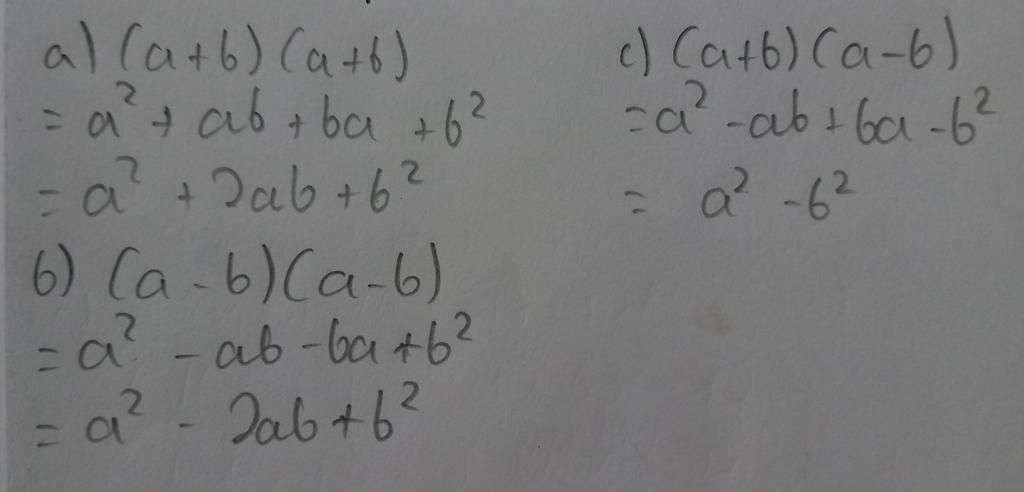 a) (a+b)(a+b)
= a² + ab + ba + b²
= a² + 2ab + b²
b) (a - b)(a - b)
= a² - ab - ba + b²
= a² - 2ab + b²
c) (a+b)(a-b)
= a² - ab + ba - b²
= a² - b²